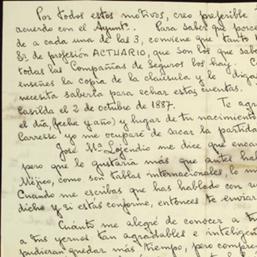 Por todos estos motivos, creo preferible
acuerdo con el Ayunt.. Para saber que porci
de a cada una de las 3, conviene que tanto
Sr. de profesión ACTUARIO, que son los que sab
todas las Compañías de Seguros los hay. C
enseñes la copia de la cláusula y le diga
necesita saberla para echar estas cuentas.
Casilda el 2 de octubre de 1887. Te agr
el día, (fecha y año) y lugar de tu nacimiento
Larresse yo me ocuparé de sacar la partida
José Mª Lojendio me dice que enca
pero que le gustaría más que antes hab
Méjico, como son tablas internacionales, lo m
Cuando me escribas que has hablado con
dicho y si estás conforme, entonces te enviar
Cuánto me alegré de conocer a t
a tus yernos tan agradables e intelige
pudieran quedar más tiempo, pero compre